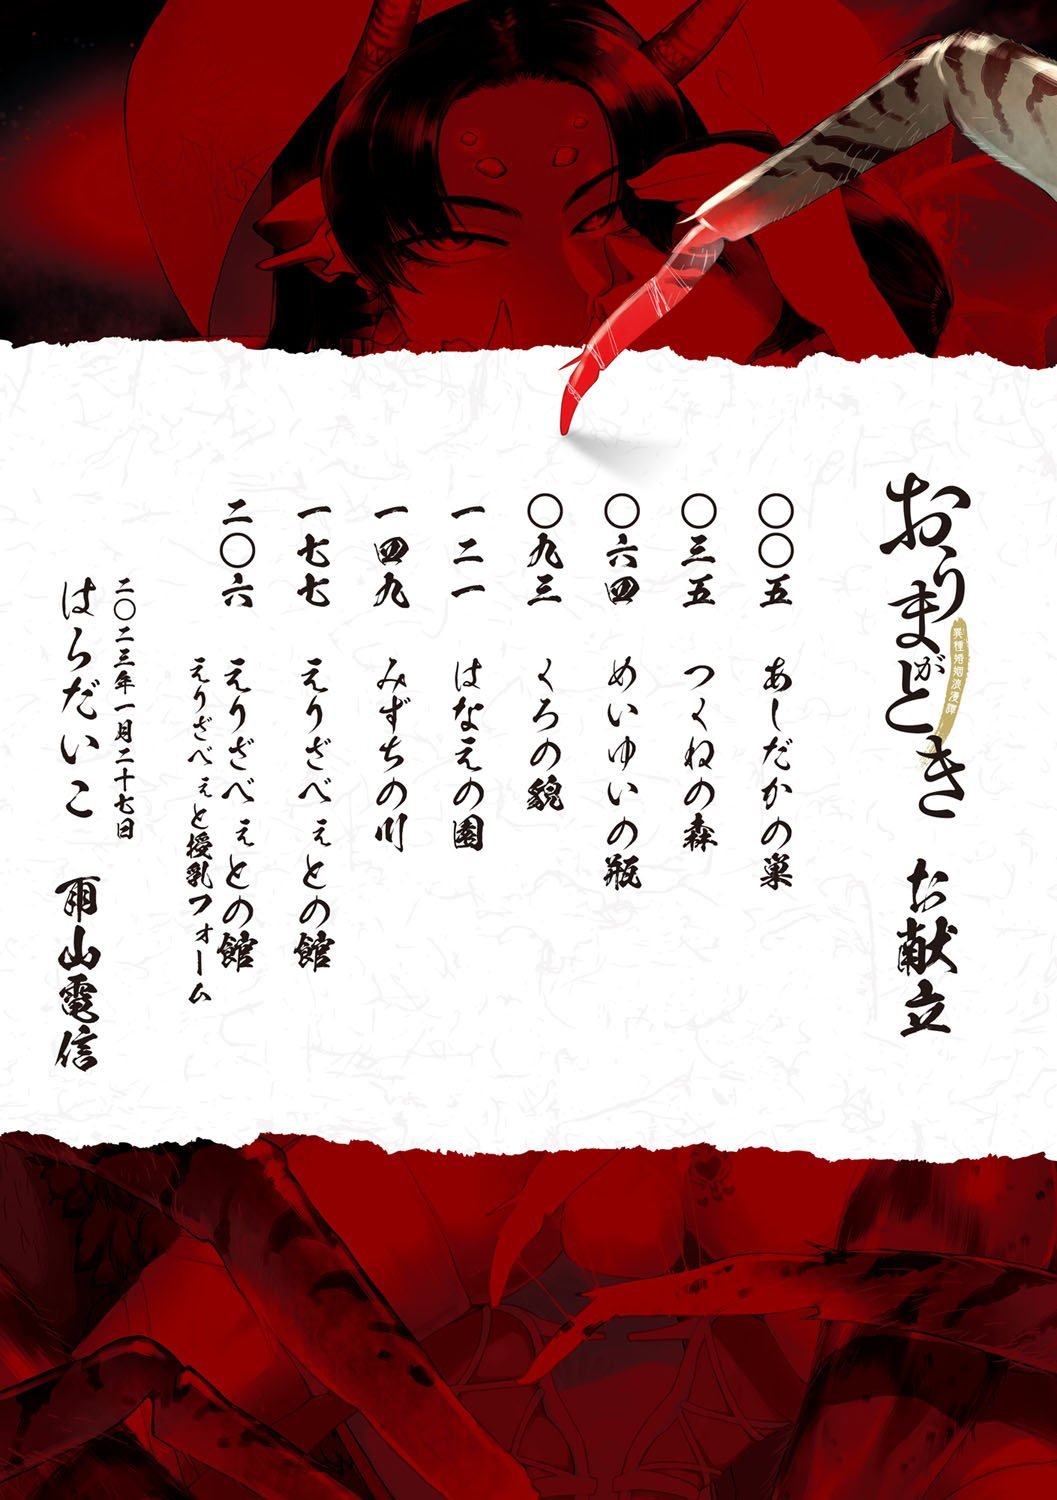 おりまがとき
異種婚姻浪漫譚
お献立
〇〇五 あしだかの巣
〇三五 つくねの森
〇六四 めいゆいの瓶
〇九三 くろの貌
一二一 はなえの園
一四九 みずちの川
一七七 えりざべぇとの館
二〇六 えりざべぇとの館
えりざべぇと授乳フォーム
二〇二三年一月二十七日
はらだいこ 雨山電信